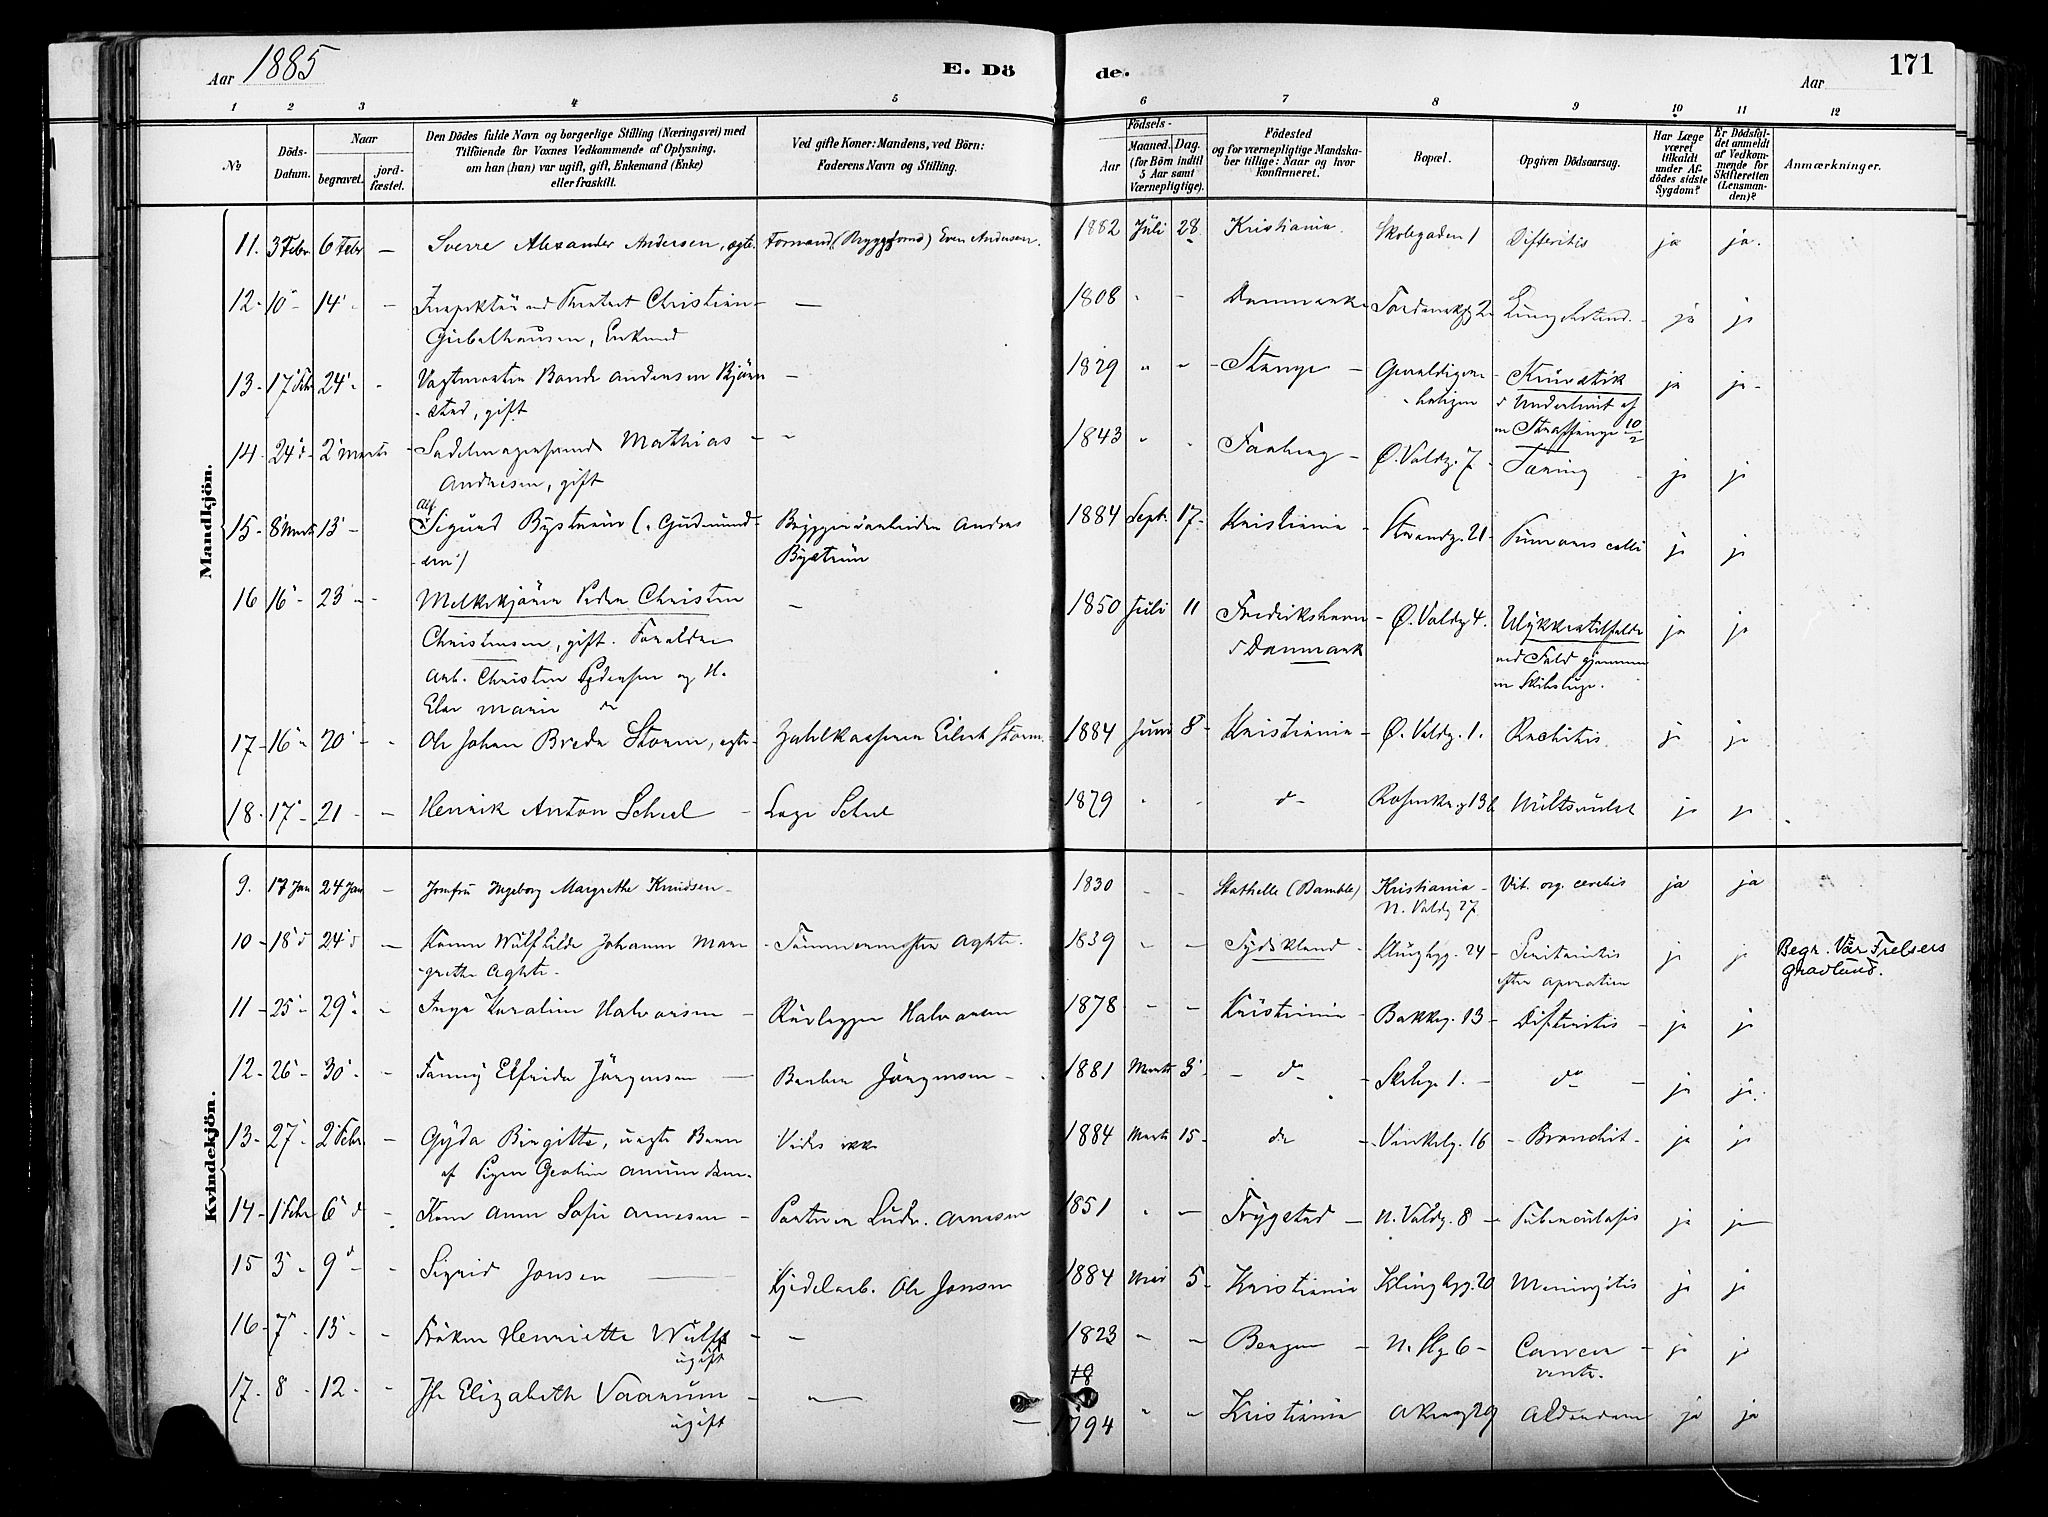 Aar 1885
E. Dö
de.
Aar
171
1 2 3 4 5 6 7 8 9 10 11 12
No
Döds-Datum.
Naar
begravet. jord-fæstet.
Den Dödes fulde Navn og borgerlige Stilling (Næringsvei) med
Tilföiende for Voxnes Vedkommende af Oplysning,
om han (hun) var ugift, gift, Enkemand (Enke)
eller fraskilt.
Ved gifte Koner: Mandens, ved Börn:
Faderens Navn og Stilling.
Födsels-
Aar
Maaned. Dag.
(for Börn indtil
5 Aar samt
Værnepligtige).
Födested
og for værnepligtige Mandska-
ber tillige: Naar og hvor
konfirmeret.
Bopæl.
Opgiven Dödsaarsag.
Har Læge
været
tilkaldt
under Af-
dödes sidste
Sygdom?
Er Dödsfal-
det anmeldt
af Vedkom-
mende for
Skifteretten
(Lensman-
den)?
Anmærkninger.
Mandkjön.
11. 3 Febr 6 Febr — Sverre Alexander Andersen, ægte. Formand (Bryggiformd) Even Andersen. 1882 Juli 28 Kristiania. Skolegaden 1 Difteritis ja ja.
12 - 10 - 14 - Christian
Giebelhausen, Enkemd — 1808 Danmark ja ja
13 - 17 Febr 24 - Vagtmester Andersen Bjørn-
stad, gift — 1829 Stange ja ja
14 - 24 2 Marts - Sadelmagersvend Mathias
Andresen, gift 1843 Faaberg - Ø. Voldg. 7 - Tæring ja ja
15 - 8 Marts 13 - Alf
Sigurd Byström (: Gudmund-
sen :) Bryggeriarbeider Andreas
Byström 1884 Sept. 17 - Kristiania - Strandg. 21 ja ja
16 16 - 23 - Melkekjörer Peder Christen
Christensen, gift. Foraldre
Arb. Christen Pedersen og H.
Else Marie — 1850 Juli 11 Fredrikshavn
i Danmark Ø. Voldg 4. Ulykkestilfælde
ved Fald gjennem
en Skibsluge. ja ja
17 - 16 - 20 - Ole Johan Breda Storm, ægte Zahlkasserer Eilert Storm 1884 Juni 8 - Kristiania - Ø. Voldg. 1. Rachitis. ja ja
18. 17 - 21 - Henrik Anton Scheel Læge Scheel 1879 do Rosenkr.g 13 b ja ja
Kvindekjön.
9. 17 Jan 24 Jan — Jomfru Ingeborg Margrethe Knudsen - 1830 Stathelle (Bamble) Kristiania -
N. Voldg 27. Vit. org. cerebri ja ja
10 - 18 d 24 d — Kone Wulfhilde Johanne Mar-
grethe Aghte. Tømmermester Aghte. 1839 Tydskland Klingbg. 24 Peritonitis
efter operation ja ja Begr. Vår Frelsers
gravlund.
11 - 25 - 29 - Inga Karoline Halvorsen Rørlægger Halvorsen 1878 Kristiania - Bakkeg. 13 - Difteritis ja ja
12 - 26 - 30 - Fanny Elfrida Jörgensen Barber Jörgensen 1881 Marts 3 do Skolege 1. do ja ja
13 - 27 - 2 Febr - Gyda Birgitte, uægte Barn
af Pigen Amundsen. Vides ikke 1884 Marts 15 do Vinkelg. 16 - Bronchit - ja ja
14 - 1 Febr 6 d - Kone Anne Sofie Arnesen Ludv. Arnesen 1851 Trygstad - N. Voldg. 8 - Tuberculosis ja ja
15 3 - 9 - Sigrid Jonsen Kjedelarb. Ole Jonsen 1884 Mai 5 - Kristiania Klingbg. 20 Meningitis ja ja
16 - 7 - 13 - Fröken Henriette Wulff
ugift — 1823 Bergen N. Slg 6 - Cancer
ventr. ja ja
17. 8 - 12 - Jfr Elizabeth Vaarum
ugift — 18
1794 Kristiania Akersg 29 Alderdom ja ja